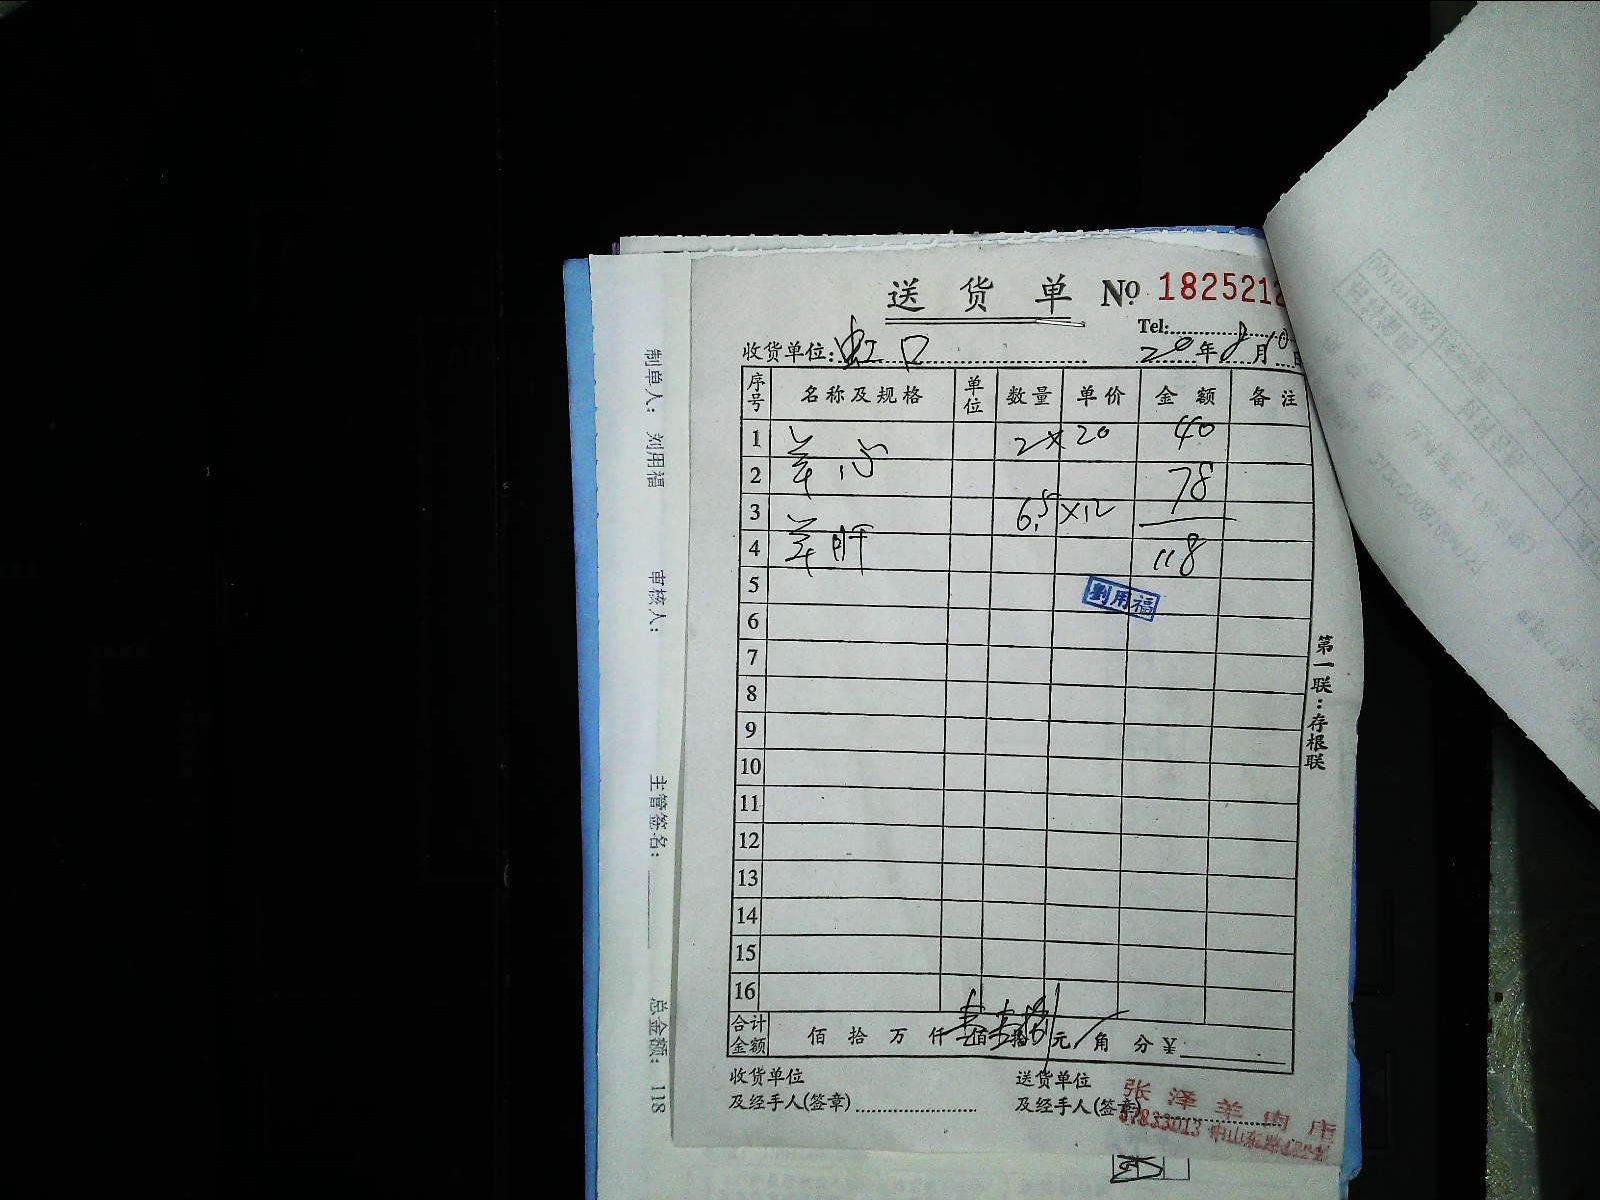 送货单 No 1825212
Tel:
收货单位: 虹口 20年8月10日
序号 名称及规格 单位 数量 单价 金额 备注
1 羊心 2×20 40
2 78
3 羊肝 6.5×12
4 118
5 劉用福
6
7
8
9
10
11
12
13
14
15
16
合计金额 佰 拾 万 仟 壹佰壹拾捌元 角 分 ¥
收货单位 送货单位
及经手人(签章) 及经手人(签章)
张泽羊肉店
第一联:存根联
制单人: 刘用福 审核人: 主管签名: 总金额: 118